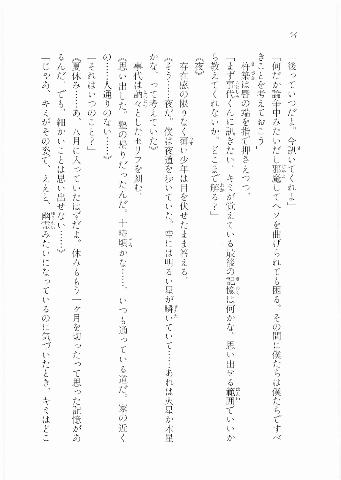 54
後っていつだよ。今訊いてくれよ」
「何だか論争中みたいだし邪魔してヘソを曲げられても困る。その間に僕たちは僕たちですべ
きことを考えておこう」
杵築は唇の端を指で押さえつつ、
「まず事代くんに訊きたい。キミが覚えている最後の記憶は何かな。思い出せる範囲でいいか
ら教えてくれないか。どこまで解る?」
《夜》
存在感の限りなく薄い少年は目を伏せたまま答える。
《そう……夜だ。僕は夜道を歩いていた。空には明るい星が瞬いていて……あれは火星か木星
かな、って考えていた》
事代は訥々としたセリフを刻む。
《思い出した。塾の帰りだったんだ。十時頃かな……。いつも通っている道だ。家の近く
の……人通りのない……》
「それはいつのこと?」
《夏休み……あ、八月に入っていたはずだよ。休みももう一ヶ月を切ったって思った記憶があ
るんだ。でも、細かいことは思い出せない……》
「じゃあ、キミがその姿で、ええと、幽霊みたいになっているのに気づいたとき、キミはどこ